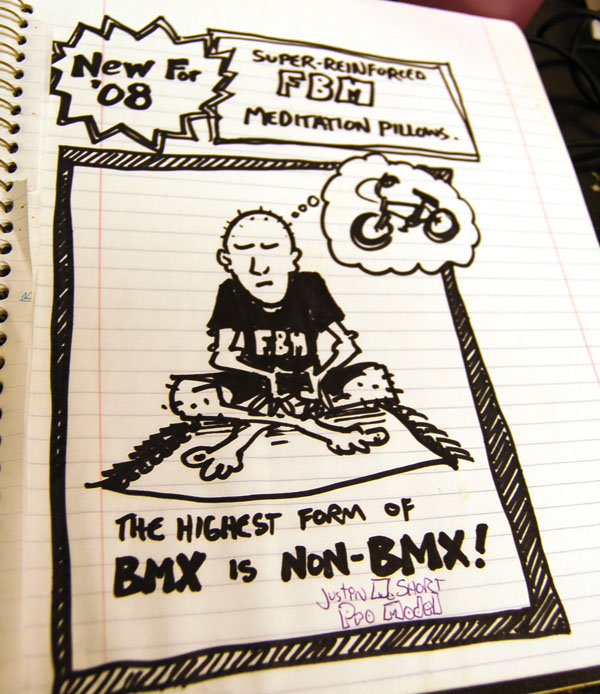 New For
'08
SUPER-REINFORCED
FBM
MEDITATION PILLOWS.
FBM
THE HIGHEST FORM OF
BMX IS NON-BMX!
JUSTIN W. SHORT
PRO MODEL